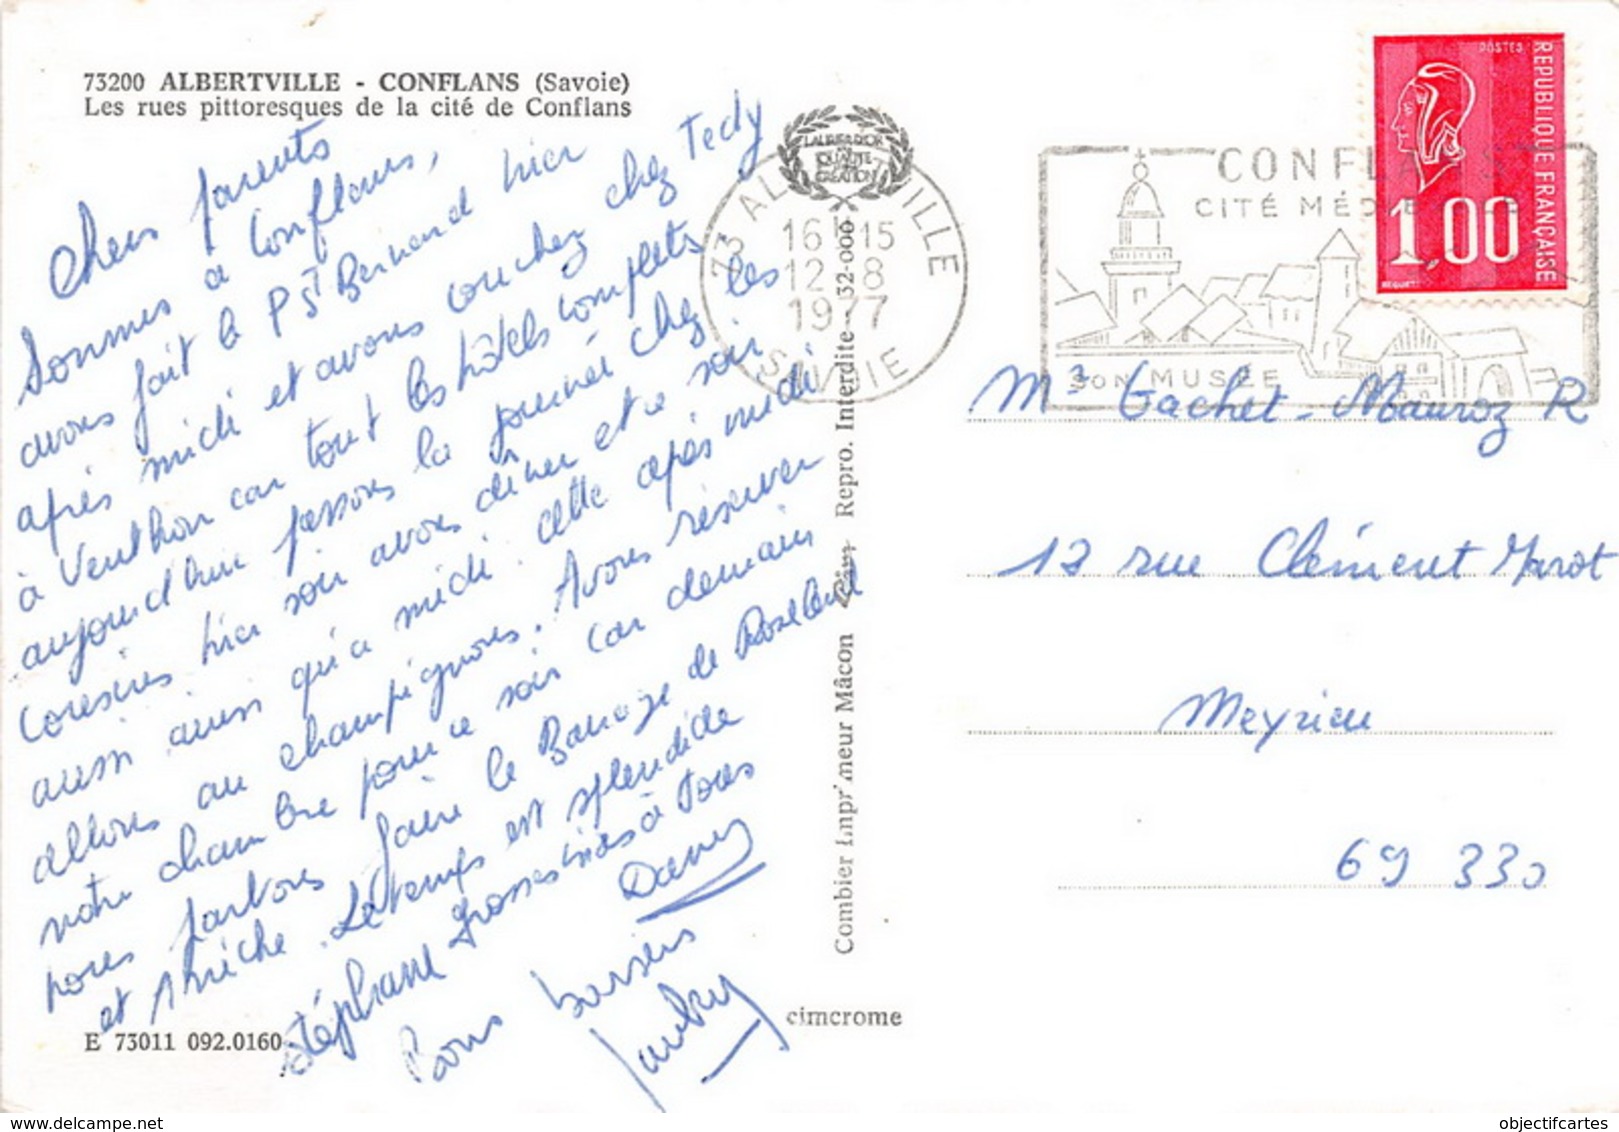 73200 ALBERTVILLE - CONFLANS (Savoie)
Les rues pittoresques de la cité de Conflans
Chers parents
Sommes a Conflans,
avons fait le P St Bernard hier
après midi et avons coucher chez Tedy
à Venthon car tout les hôtels complets
aujourd'hui passons la journée chez les
cousins hier soir avons dîner et ce soir
aussi ainsi qu'a midi. cette après midi
allons au champignons. Avons réserver
notre chambre pour ce soir car demain
nous partons faire le Barrage de Roseland
et . Le temps est splendide
Stéphane grosses bises à tous
Dany
Bons baisers
E 73011 092.0160
LAURIER D'OR
DE LA
QUALITÉ
CRÉATION
73 ALBERTVILLE
16H15
12-8
1977
SAVOIE
Combier Imprimeur Mâcon Repro. Interdite 32-000
cimcrome
CONFLANS
CITÉ MÉDIEVALE
SON MUSÉE
POSTES
REPUBLIQUE FRANÇAISE
1,00
BEQUET
Mr Gachet-Mauroz R
13 rue Clément Marot
Meyzieu
69 330
objectifcartes